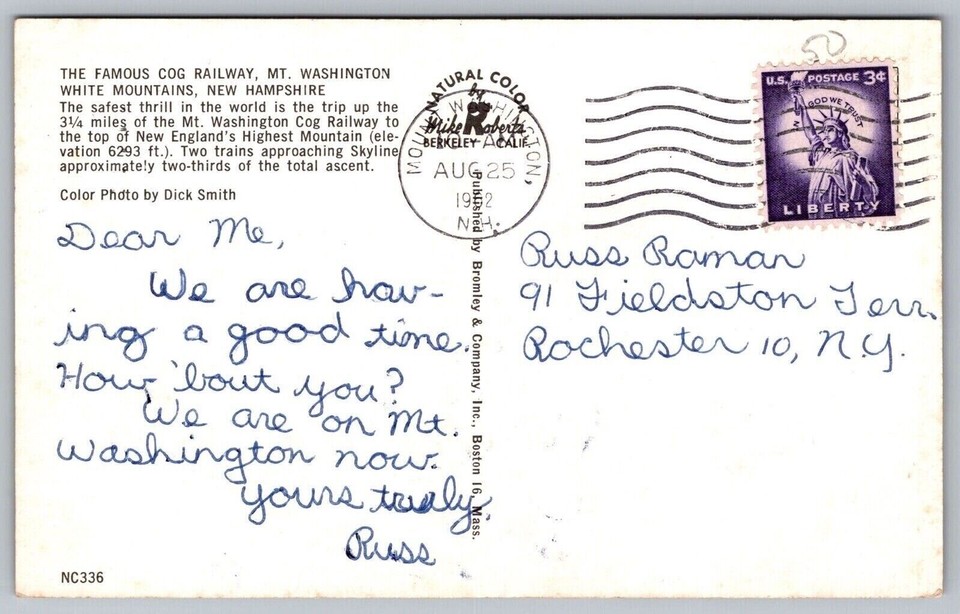 50
THE FAMOUS COG RAILWAY, MT. WASHINGTON
WHITE MOUNTAINS, NEW HAMPSHIRE
The safest thrill in the world is the trip up the
3¼ miles of the Mt. Washington Cog Railway to
the top of New England's Highest Mountain (ele-
vation 6293 ft.). Two trains approaching Skyline
approximately two-thirds of the total ascent.
Color Photo by Dick Smith
NATURAL COLOR
by
Mike Roberts
BERKELEY CALIF.
MOUNT WASHINGTON,
AUG 25
1962
N.H.
U.S. POSTAGE 3¢
IN GOD WE TRUST
LIBERTY
Dear Me,
We are hav-
ing a good time.
How 'bout you?
We are on Mt.
Washington now.
Yours truly,
Russ
Published by Bromley & Company, Inc., Boston 16, Mass.
Russ Raman
91 Fieldston Terr.
Rochester 10, N.Y.
NC336